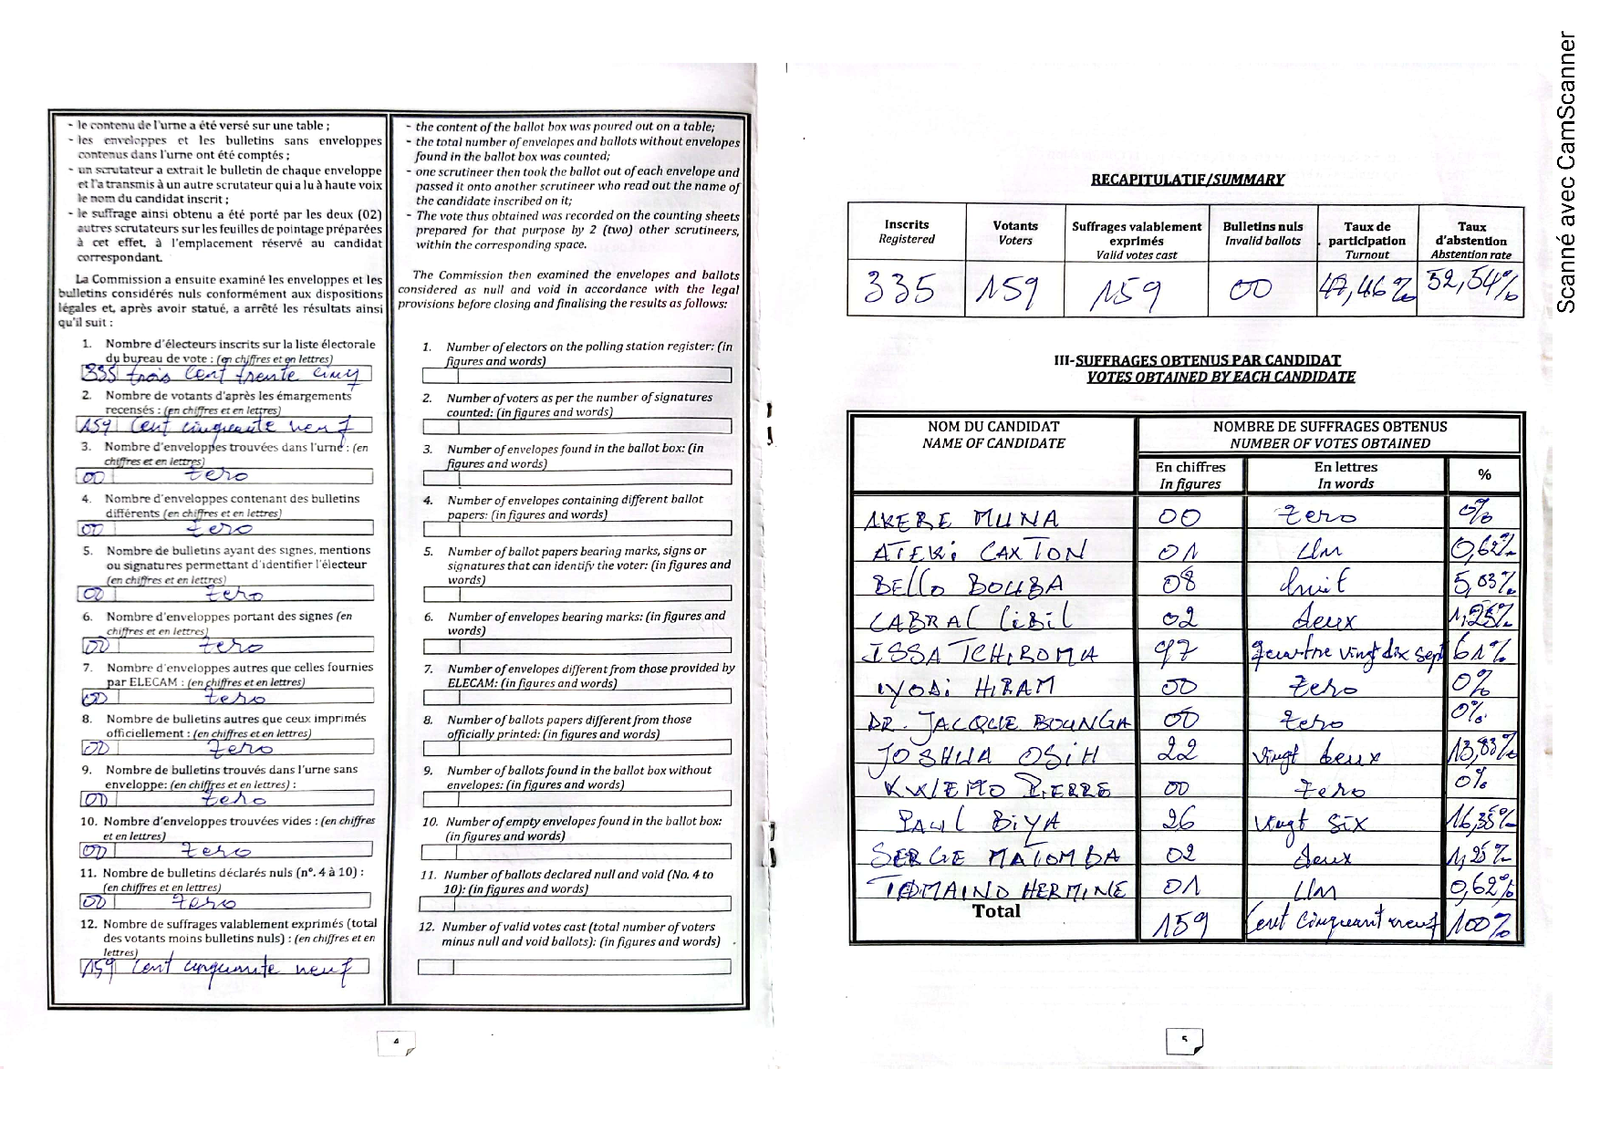 - le contenu de l'urne a été versé sur une table ;
- les enveloppes et les bulletins sans enveloppes
contenus dans l'urne ont été comptés ;
- un scrutateur a extrait le bulletin de chaque enveloppe
et l'a transmis à un autre scrutateur qui a lu à haute voix
le nom du candidat inscrit ;
- le suffrage ainsi obtenu a été porté par les deux (02)
autres scrutateurs sur les feuilles de pointage préparées
à cet effet, à l'emplacement réservé au candidat
correspondant.
La Commission a ensuite examiné les enveloppes et les
bulletins considérés nuls conformément aux dispositions
légales et, après avoir statué, a arrêté les résultats ainsi
qu'il suit :
1. Nombre d'électeurs inscrits sur la liste électorale
du bureau de vote : (en chiffres et en lettres)
335 trois cent trente cinq
2. Nombre de votants d'après les émargements
recensés : (en chiffres et en lettres)
159 cent cinquante neuf
3. Nombre d'enveloppes trouvées dans l'urne : (en
chiffres et en lettres)
00 zero
4. Nombre d'enveloppes contenant des bulletins
différents (en chiffres et en lettres)
00 zero
5. Nombre de bulletins ayant des signes, mentions
ou signatures permettant d'identifier l'électeur
(en chiffres et en lettres)
00 zero
6. Nombre d'enveloppes portant des signes (en
chiffres et en lettres)
00 zero
7. Nombre d'enveloppes autres que celles fournies
par ELECAM : (en chiffres et en lettres)
00 zero
8. Nombre de bulletins autres que ceux imprimés
officiellement : (en chiffres et en lettres)
00 zero
9. Nombre de bulletins trouvés dans l'urne sans
enveloppe: (en chiffres et en lettres) :
00 zero
10. Nombre d'enveloppes trouvées vides : (en chiffres
et en lettres)
00 zero
11. Nombre de bulletins déclarés nuls (n°. 4 à 10) :
(en chiffres et en lettres)
00 zero
12. Nombre de suffrages valablement exprimés (total
des votants moins bulletins nuls) : (en chiffres et en
lettres)
159 cent cinquante neuf
- the content of the ballot box was poured out on a table;
- the total number of envelopes and ballots without envelopes
found in the ballot box was counted;
- one scrutineer then took the ballot out of each envelope and
passed it onto another scrutineer who read out the name of
the candidate inscribed on it;
- The vote thus obtained was recorded on the counting sheets
prepared for that purpose by 2 (two) other scrutineers,
within the corresponding space.
The Commission then examined the envelopes and ballots
considered as null and void in accordance with the legal
provisions before closing and finalising the results as follows:
1. Number of electors on the polling station register: (in
figures and words)
2. Number of voters as per the number of signatures
counted: (in figures and words)
3. Number of envelopes found in the ballot box: (in
figures and words)
4. Number of envelopes containing different ballot
papers: (in figures and words)
5. Number of ballot papers bearing marks, signs or
signatures that can identify the voter: (in figures and
words)
6. Number of envelopes bearing marks: (in figures and
words)
7. Number of envelopes different from those provided by
ELECAM: (in figures and words)
8. Number of ballots papers different from those
officially printed: (in figures and words)
9. Number of ballots found in the ballot box without
envelopes: (in figures and words)
10. Number of empty envelopes found in the ballot box:
(in figures and words)
11. Number of ballots declared null and void (No. 4 to
10): (in figures and words)
12. Number of valid votes cast (total number of voters
minus null and void ballots): (in figures and words)
4
RECAPITULATIF/SUMMARY
Inscrits Registered | Votants Voters | Suffrages valablement exprimés Valid votes cast | Bulletins nuls Invalid ballots | Taux de participation Turnout | Taux d'abstention Abstention rate
335 159 159 00 47,46% 52,54%
III-SUFFRAGES OBTENUS PAR CANDIDAT
VOTES OBTAINED BY EACH CANDIDATE
NOM DU CANDIDAT NOMBRE DE SUFFRAGES OBTENUS
NAME OF CANDIDATE NUMBER OF VOTES OBTAINED
En chiffres En lettres %
In figures In words
AKERE MUNA 00 zero 0%
ATEKI CAXTON 01 Un 0,62%
BELLO BOUBA 08 huit 5,03%
CABRAL LIBII 02 deux 1,25%
ISSA TCHIROMA 97 quatre vingt dix sept 61%
IYODI HIRAM 00 zero 0%
DR. JACQUE BOUNGA 00 zero 0%
JOSHUA OSIH 22 vingt deux 13,83%
KWEMO PIERRE 00 zero 0%
PAUL BIYA 26 vingt six 16,35%
SERGE MATOMBA 02 deux 1,25%
TOMAINO HERMINE 01 Un 0,62%
Total 159 Cent cinquant neuf 100%
5
Scanné avec CamScanner